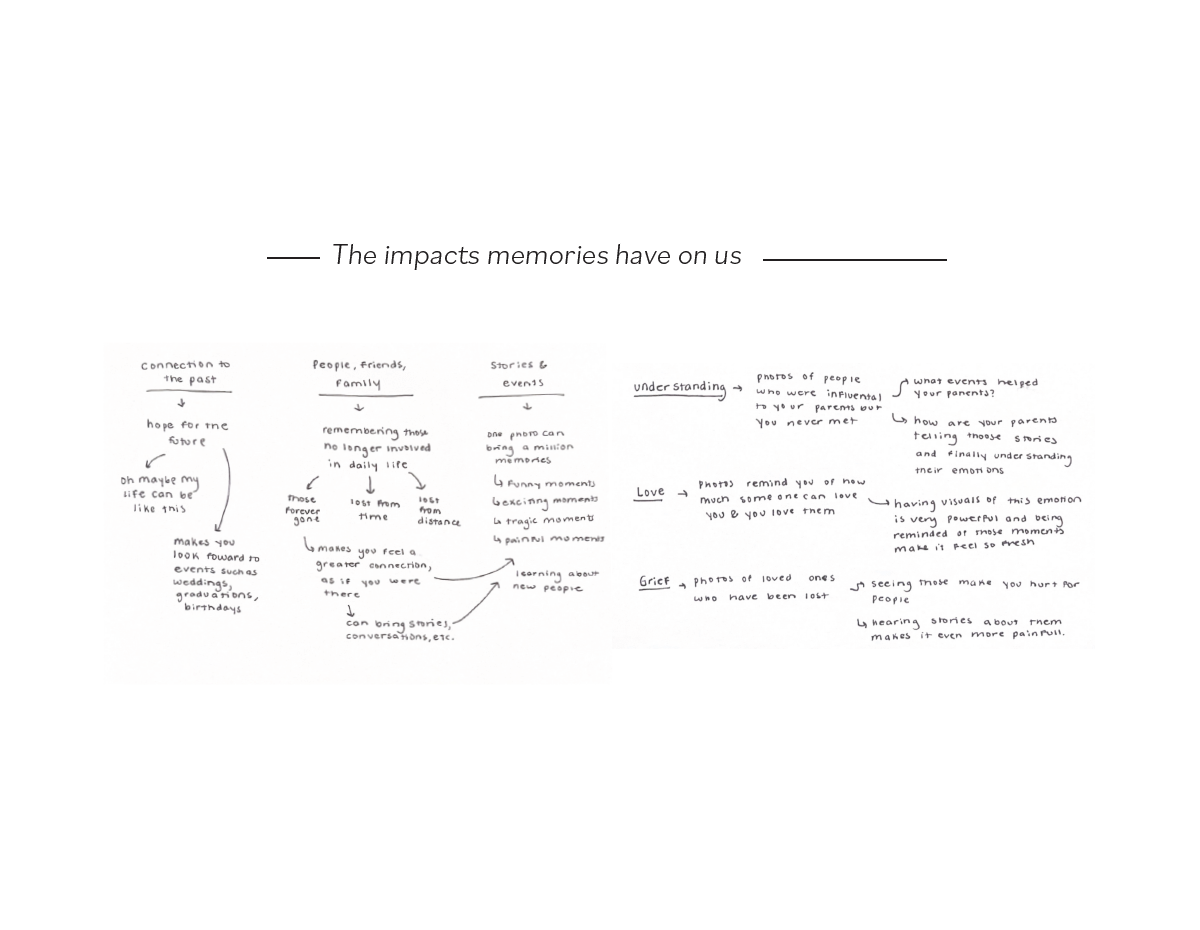 The impacts memories have on us
connection to
the past
hope for the
future
oh maybe my
life can be
like this
makes you
look foward to
events such as
weddings,
graduations,
birthdays
People, friends,
family
remembering those
no longer involved
in daily life
those
forever
gone
lost from
time
lost
from
distance
makes you feel a
greater connection,
as if you were
there
can bring stories,
conversations, etc.
Stories &
events
one photo can
bring a million
memories
funny moments
exciting moments
tragic moments
painful moments
learning about
new people
understanding
photos of people
who were influental
to your parents but
you never met
what events helped
your parents?
how are your parents
telling thoose stories
and finally understanding
their emotions
Love
photos remind you of how
much someone can love
you & you love them
having visuals of this emotion
is very powerful and being
reminded of those moments
make it feel so fresh
Grief
photos of loved ones
who have been lost
seeing those make you hurt for
people
hearing stories about them
makes it even more painfull.